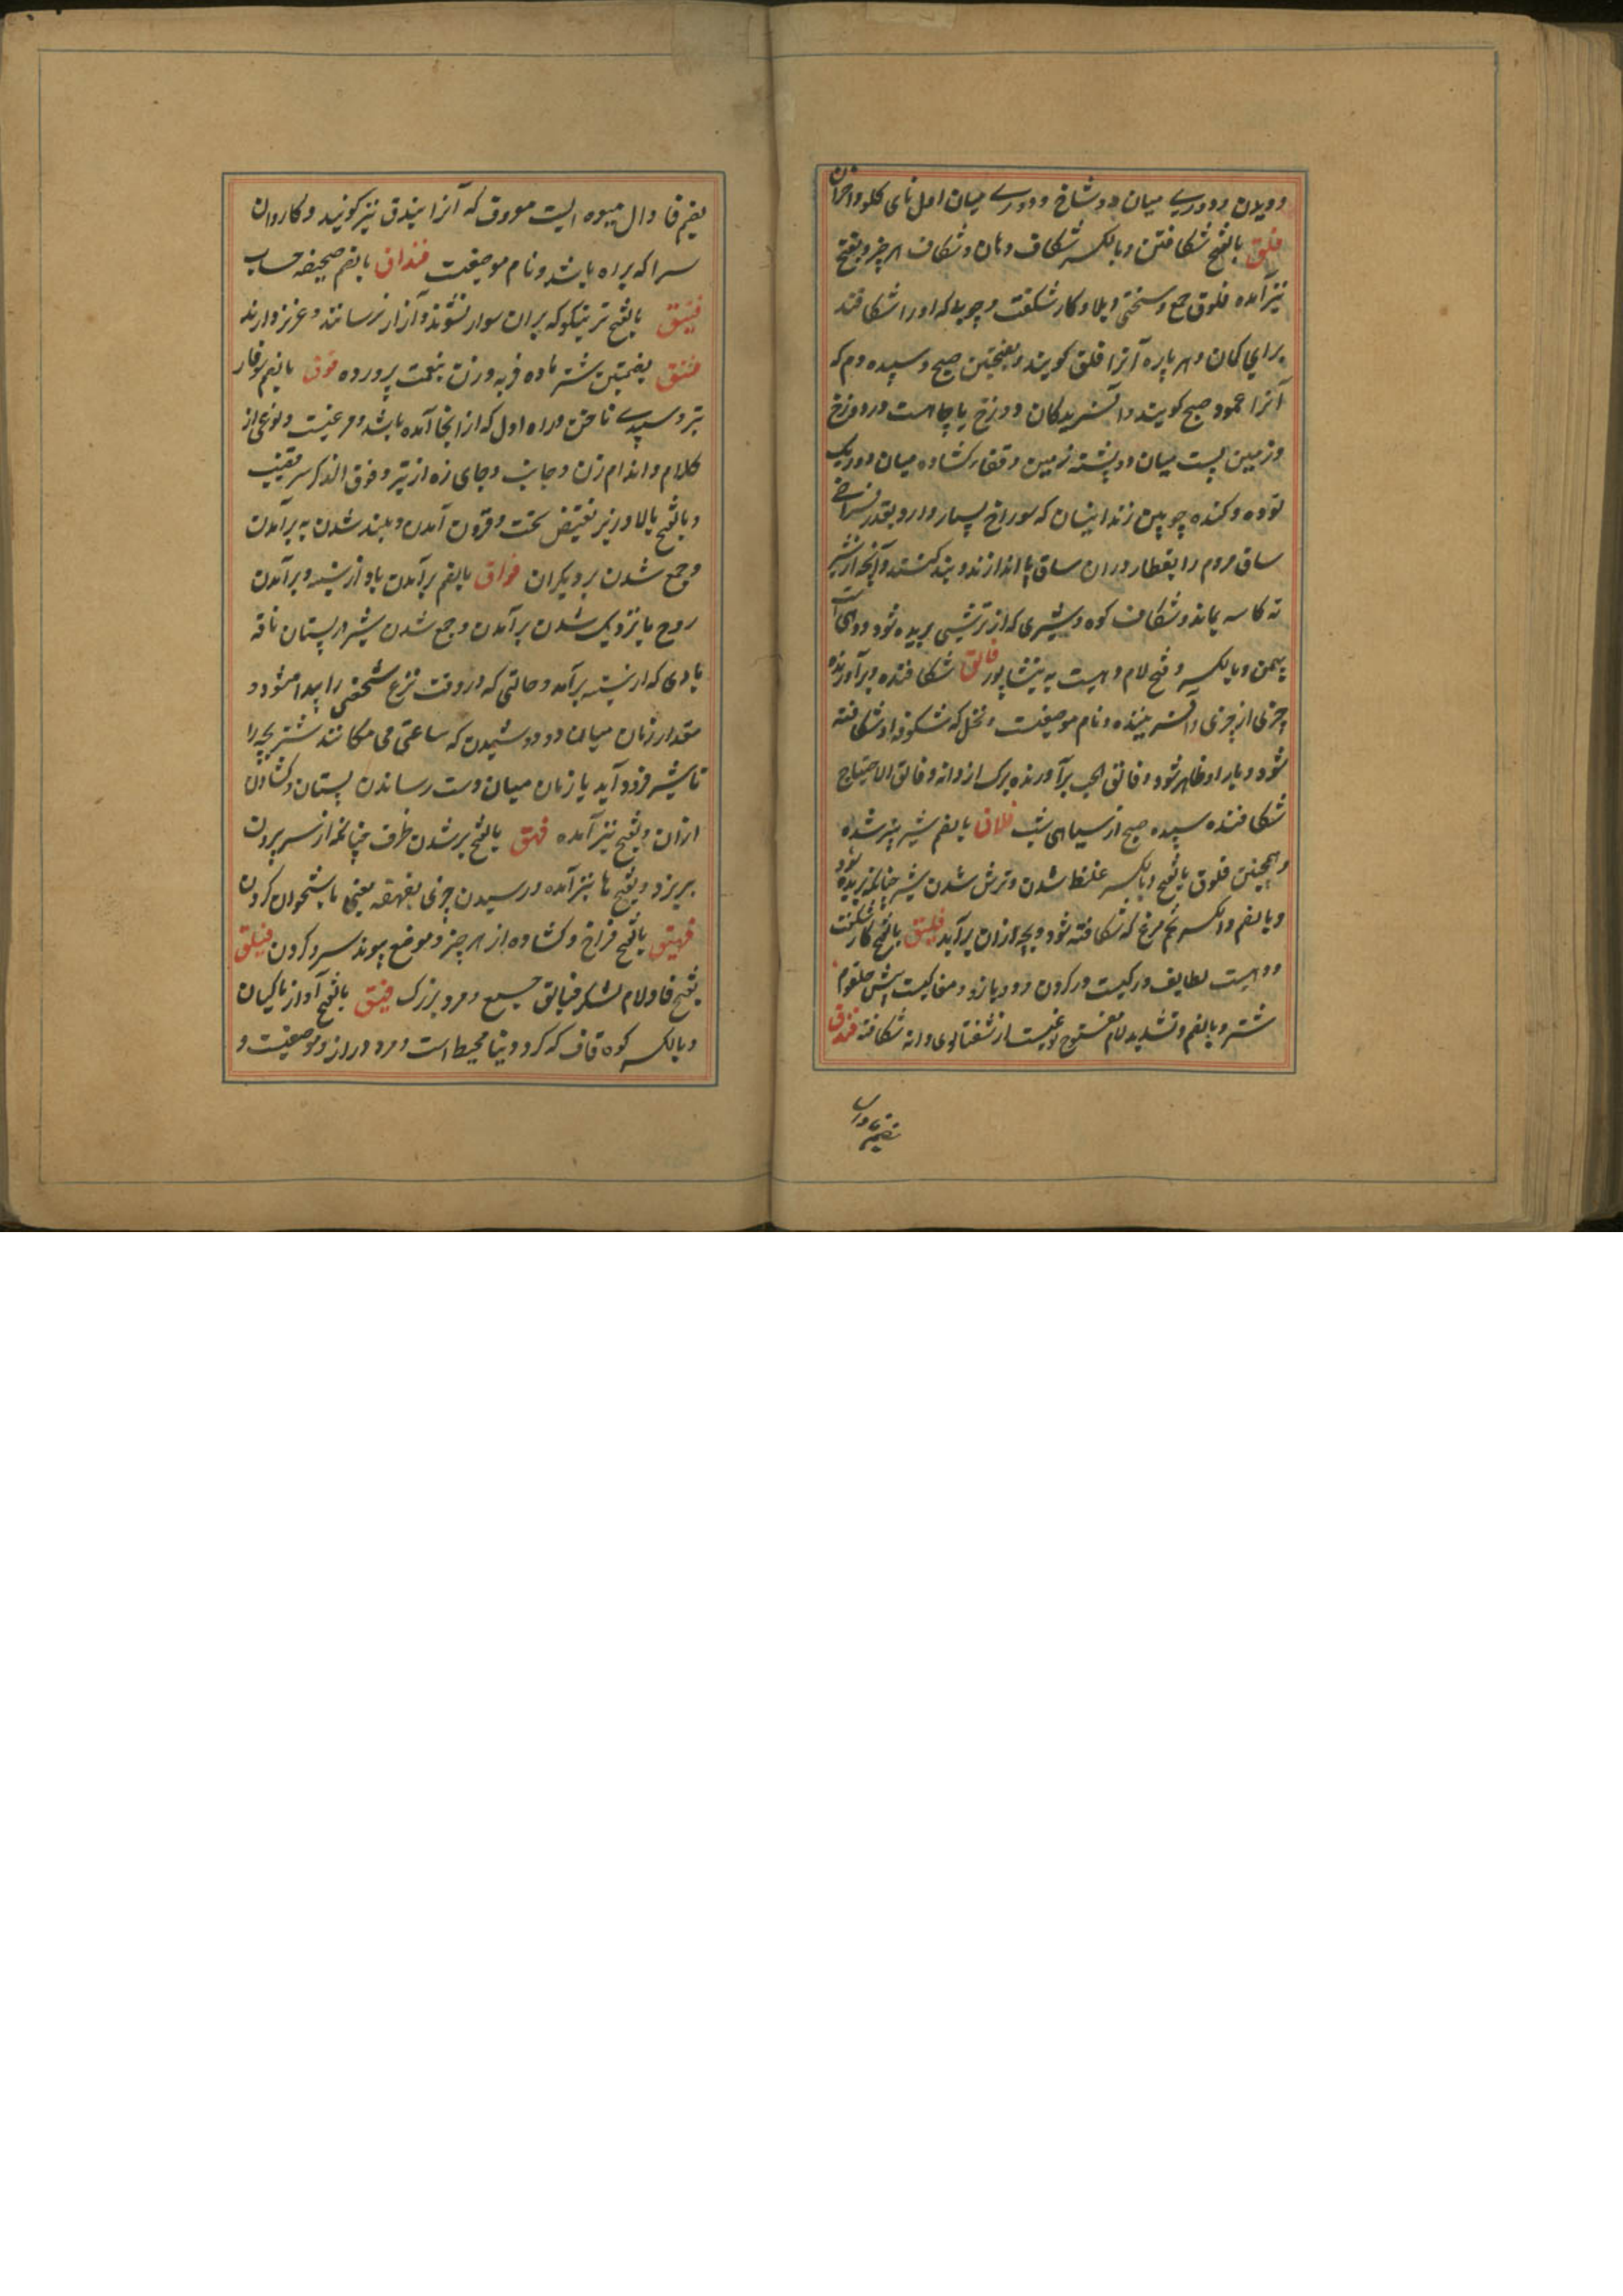 و ویلان و دوری میان دو شاخ و دوری میان اول نای کلو و اخران
فلق بالفتح شکافتن و بالکسر شکاف دهان و شکاف هر چیز و بفتح
نیز آمده فلوق جمع و سختی و بلا و کار شکفت و چوبی که او را شکافند
برای کمان و هر پاره آنرا فلق کویند و بفتحتین صبح و سپیده دم که
آنرا عمود صبح کویند و آفریدکان و دوزخ یا چاهست در دوزخ
و زمین پست میان دو پشته زمین و قضاء کشاده میان دو ریک
توده و کنده چوبین زندانیان که سوراخ بسیار دارد بقدر فراخی
ساق مردم را بقطار دران ساق پا اندازند و بند کنند و آنچه از شیر
ته کاسه بماند و شکاف کوه و شیری که از ترشی بریده شود و دهی است
بیمن و بالکسر و فتح لام دهیست به نیشاپور فالق شکافنده و برآورنده
چیزی از چیزی و آفریننده و نام موضعیست و نخل که شکوفه او شکافته
شود و بار او ظاهر شود و فالق الحب برآورنده برک از دانه و فالق الاصباح
شکافنده سپیده صبح از سیاهی شب فلاق بالضم شیر پنیر شده
و همچنین فلوق بالفتح و بالکسر غلیظ شدن و ترش شدن شیر چنانکه بریده شود
و بالضم و الکسر تخم مرغ که شکافته شود و بچه ازان برآید فلیق بالفتح کار شکفت
و دهیست بطایف و رکیست در کردن و در بازو و مغاکیست پیش حلقوم
شتر و بالضم و تشدید لام مفتوح نوعیست از شفتالوی دانه شکافته فندق
بضم فا و دال
بضم فا و دال میوه ایست معروف که آنرا بندق نیز کویند و کاروان
سرا که براه باشد و نام موضعیست فنداق بالضم صحیفه حساب
فنیق بالفتح نر نیکو که بران سوار نشوند و آزار نرسانند و عزیز دارند
فنق بضمتین شتر ماده فربه و زن بنعمت پرورده فوق بالضم سوفار
تیر و سپیدی ناخن و راه اول که از انجا آمده باشد و مرغیست و نوعی از
کلام و اندام زن و جانب و جای زه از تیر و فوق الذکر سر قضیب
و بالفتح بالا و زبر نقیض تحت و فزون آمدن و بلند شدن به برآمدن
و جمع شدن بر دیکران فواق بالضم برآمدن باد از سینه و برآمدن
روح یا نزدیک شدن برآمدن و جمع شدن شیر در پستان ناقه
بادی که از سینه برآمد و حالتی که در وقت نزع شخصی را پیدا میشود و
مقدار زمان میان دو دوشیدن که ساعتی می مکانند شتر بچه را
تا شیر فرود آید یا زمان میان دست رساندن پستان و کشادن
ازان و بفتح نیز آمده فهق بالفتح پر شدن ظرف چنانکه از سر برون
بریزد و بفتح ها نیز آمده و رسیدن چیزی بفهقه یعنی باستخوان کردن
فهیق بالفتح فراخ و کشاده از هر چیز و موضع پیوند سر و کردن فیلق
بفتح فا و لام لشکر فیالق جمع و مرد بزرک فیق بالفتح آواز ماکیان
و بالکسر کوه قاف که کرد دنیا محیط است و مرد دراز و موضعیست و